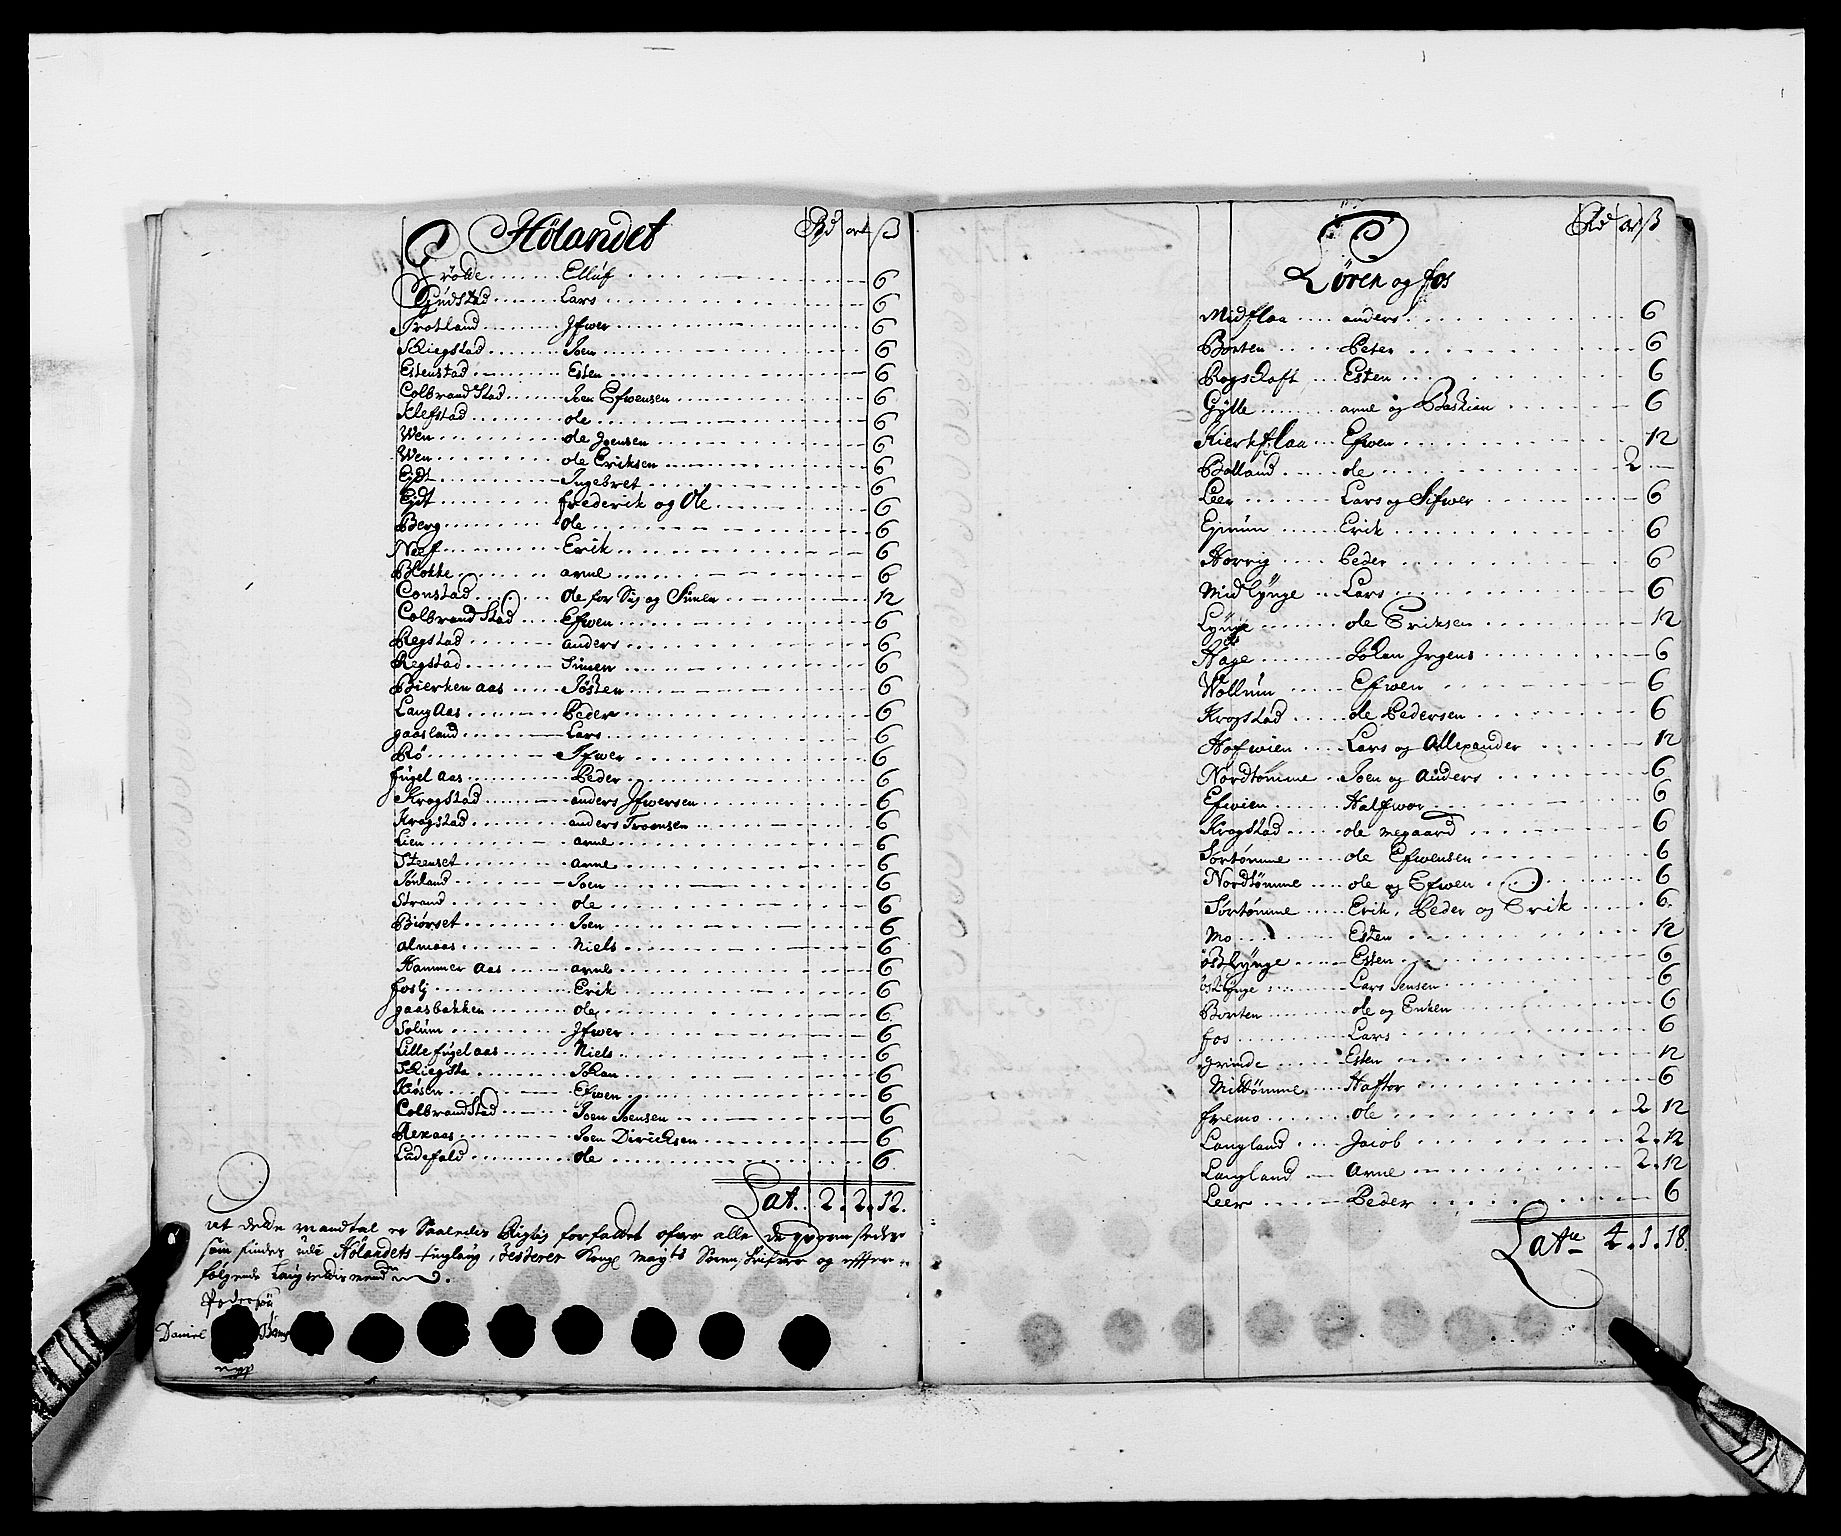 Hølandet Rd ort ß
Frøtte Elluf 6
Gudstad Lars 6
Trotland Jfwer 6
Skiegstad Joen 6
Estenstad Esten 6
Colbrandstad Joen Efwensen 6
Klefstad ole 6
Wen ole Joensen 6
Wen ole Eriksen 6
Eidt Ingebret 6
Eidt frederik og Ole 6
Berg Ole 6
Nerf Erik 6
Blokke arne 6
Constad Ole for Sig og Simen 12
Colbrandstad Efwen 6
Regstad anders 6
Regstad Simen 6
Bierkenaas Jøsten 6
LangAas Peder 6
gaasland Lars 6
Rø Jfwer 6
fugel Aas Peder 6
Krogstad anders Jfwersen 6
Krogstad anders Troensen 6
Lien arne 6
Steenset arne 6
Jonland Joen 6
Strand ole 6
Biørset Joen 6
almaas Niels 6
Hammer aas arne 6
foslj Erik 6
gaasbakken ole 6
Solum Jfwer 6
Lille fugelaas Niels 6
Skiegsta Johan 6
Kiøsen Efwen 6
Colbrandstad Joen Joensen 6
Rexaas Joen Diricksen 6
Ladefald ole 6
Lat. 2. 2. 12.
at dette mandtal er Saaledis Rigtig forfattet ofwer alle de
som findes udi Hølandets tinglaug, testerer Kongl mayts Sorenskrifwer og effter=
følgende Laugrettismend
Pedersøn
Daniel
mpp
Rd ort ß
Løren og fos
Midflaa anders 6
Borten Peter 6
Rogstoft Esten 6
Gylle arne og Bastian 6
Kierkflaa Efwen 12
Bolland ole 2
Leer Lars og Sifwer 6
Gimm Erik 6
Horrig Peder 6
Midlynge Lars 6
Lynge ole Eriksen 12
Hage Johan Jrgens 6
Wollum Efwen 6
Krogstad ole Pedersen 6
Hofwien Lars og Allexander 12
Nordtømme Joen og Anders 6
Efwien Halfwor 6
Krogstad ole megaard 6
Sørtømme ole Efwensen 6
Nordtømme ole og Efwen 6
Sørtømme Erik, Peder og Erik 6
Mo Esten 12
østlynge Esten 6
østlynge Lars Jensen 6
Borten ole og Enken 6
fos Lars 6
grinde Esten 12
Midtømme Haftor 6
fremo ole 2 12
Langland Jacob 2. 12
Langland Arne 2. 12
Leer Peder 6
Late 4. 1. 18.